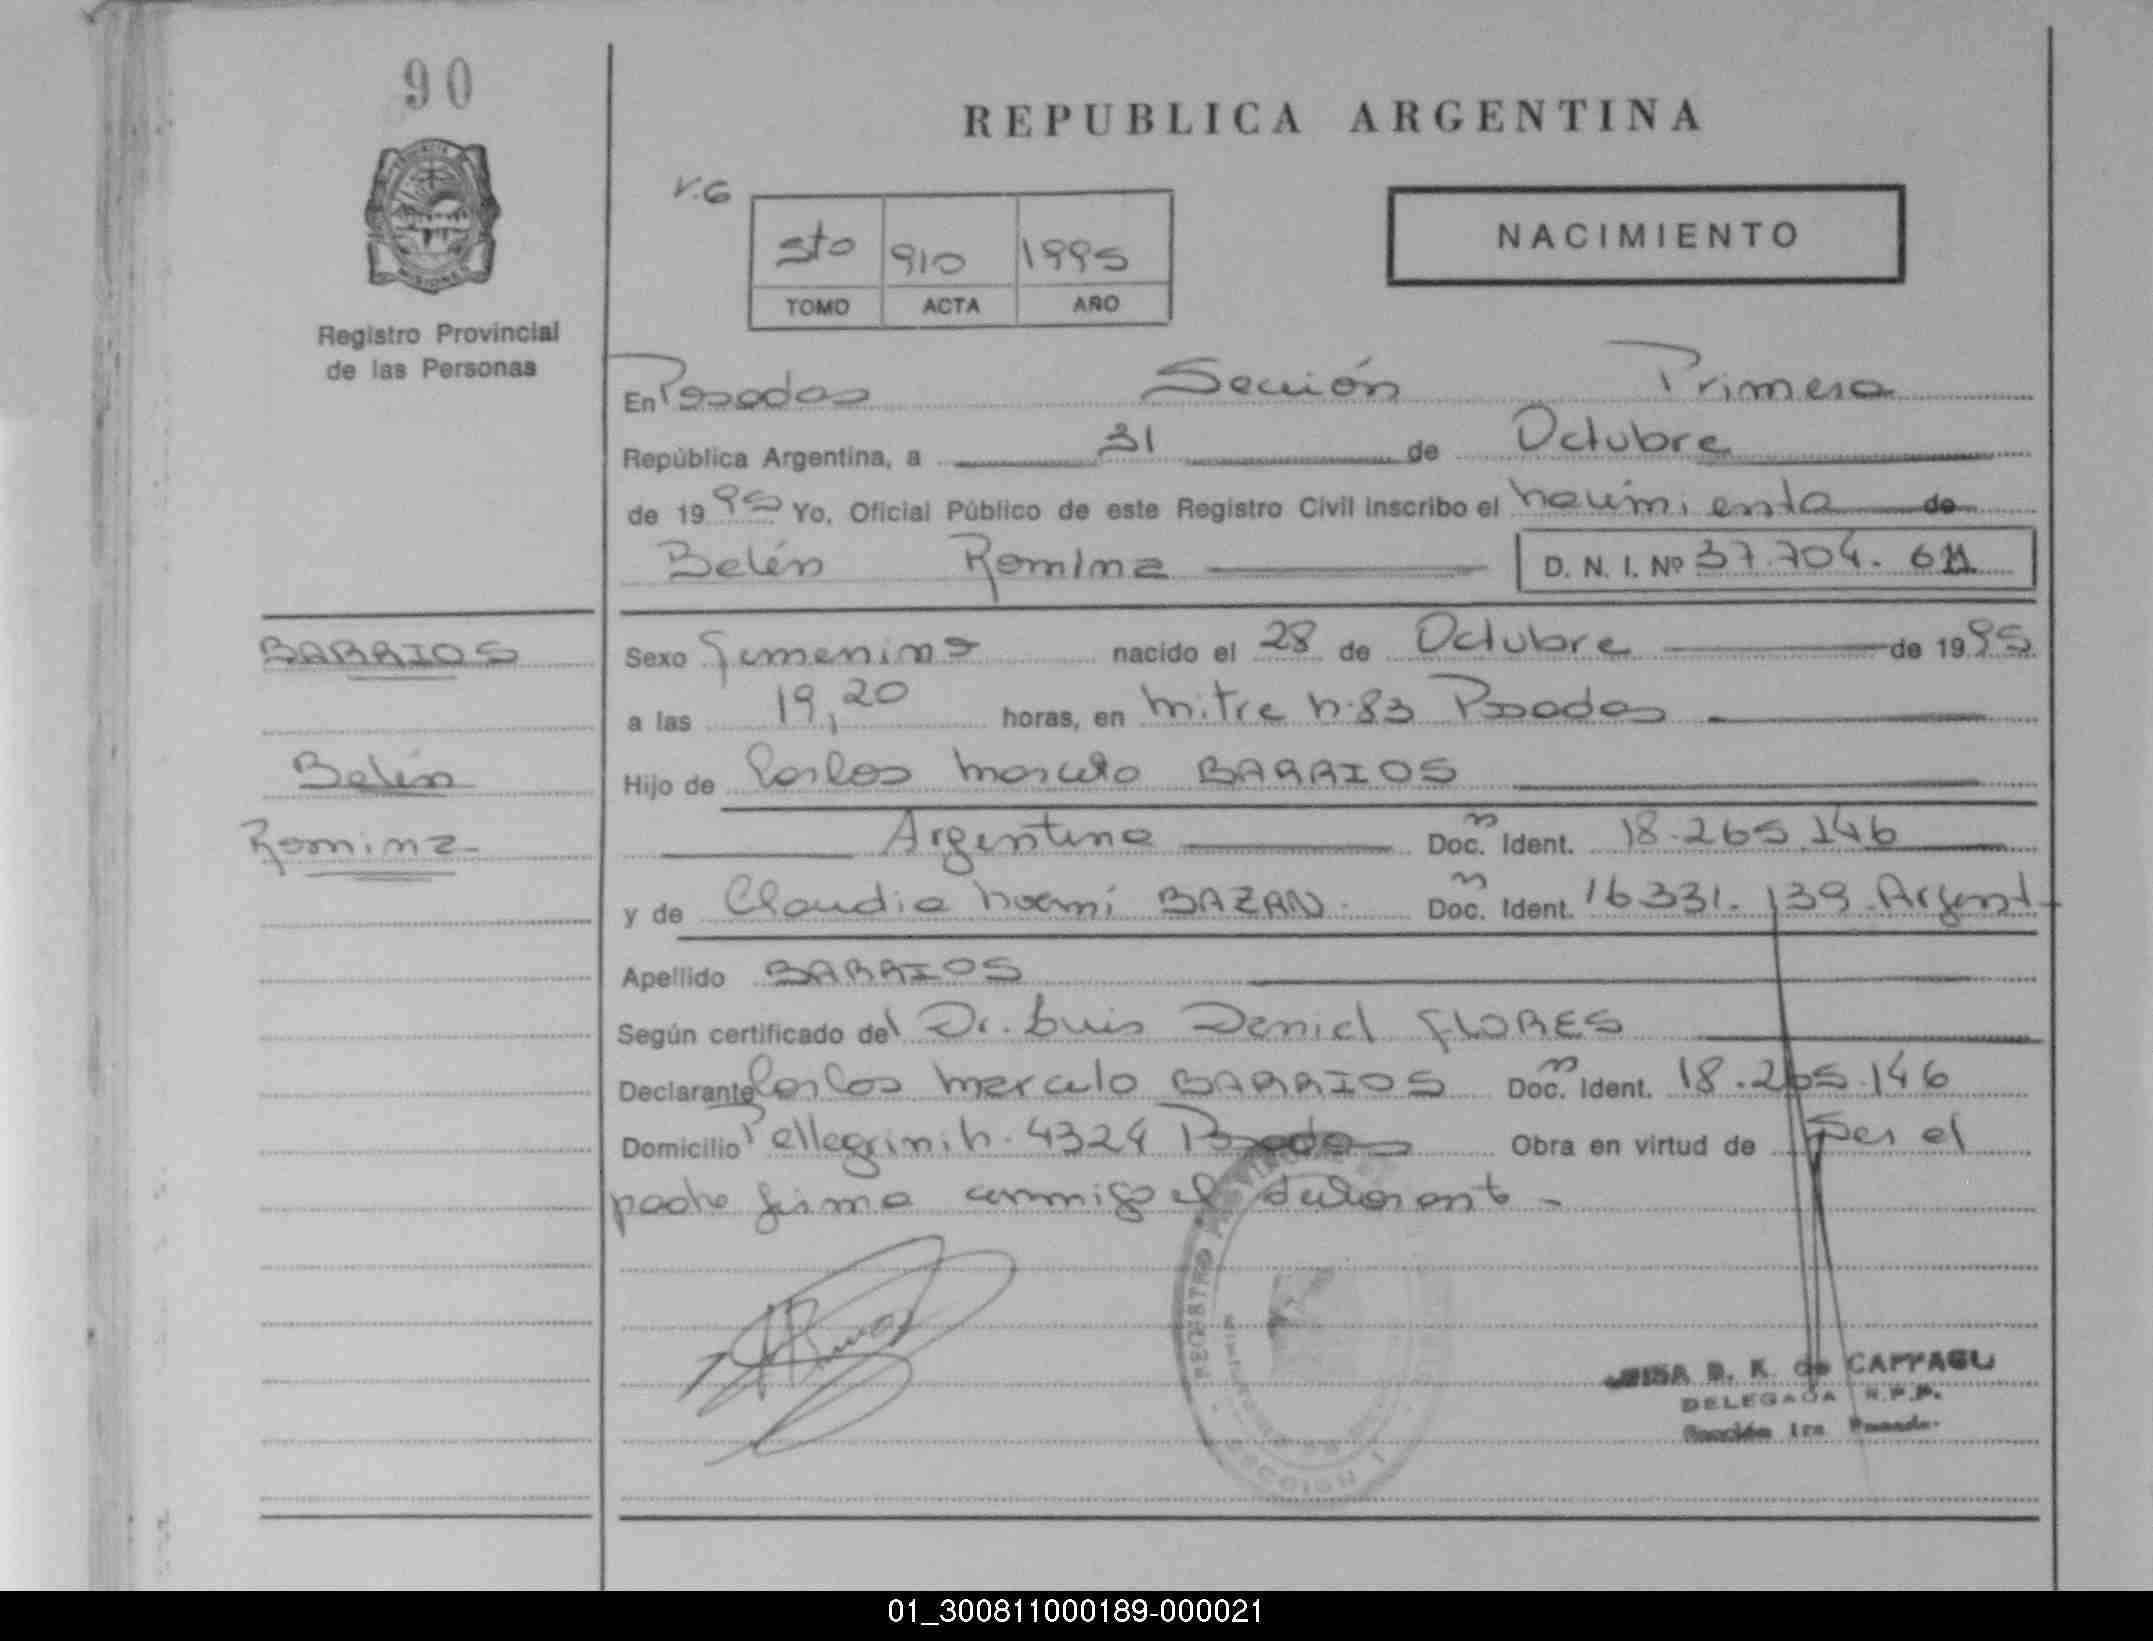 90
REPUBLICA ARGENTINA
v.6
5to 910 1995
TOMO ACTA AÑO
NACIMIENTO
Registro Provincial
de las Personas
En Posadas Sección Primera
República Argentina, a 31 de Octubre
de 1995 Yo, Oficial Público de este Registro Civil inscribo el nacimiento de
Belén Romina D. N. I. Nº 37.704.
BARRIOS
Belén
Romina
Sexo Femenino nacido el 28 de Octubre de 1995
a las 19,20 horas, en Mitre N.83 Posadas
Hijo de Carlos Marcelo BARRIOS
Argentino Doc. Ident. 18.265.146
y de Claudia Noemí BAZAN. Doc. Ident. 16331.139 Argent
Apellido BARRIOS
Según certificado del Dr. Luis Daniel FLORES
Declarante Carlos Marcelo BARRIOS Doc. Ident. 18.265.146
Domicilio Pellegrini N. 4324 Posadas Obra en virtud de Ser el
padre firma conmigo el declarante -
REGISTRO PROVINCIAL
SECCION 1
D. K. de CAPPAGLI
DELEGADA R.P.P.
Sección 1ra Posadas
01_300811000189-000021